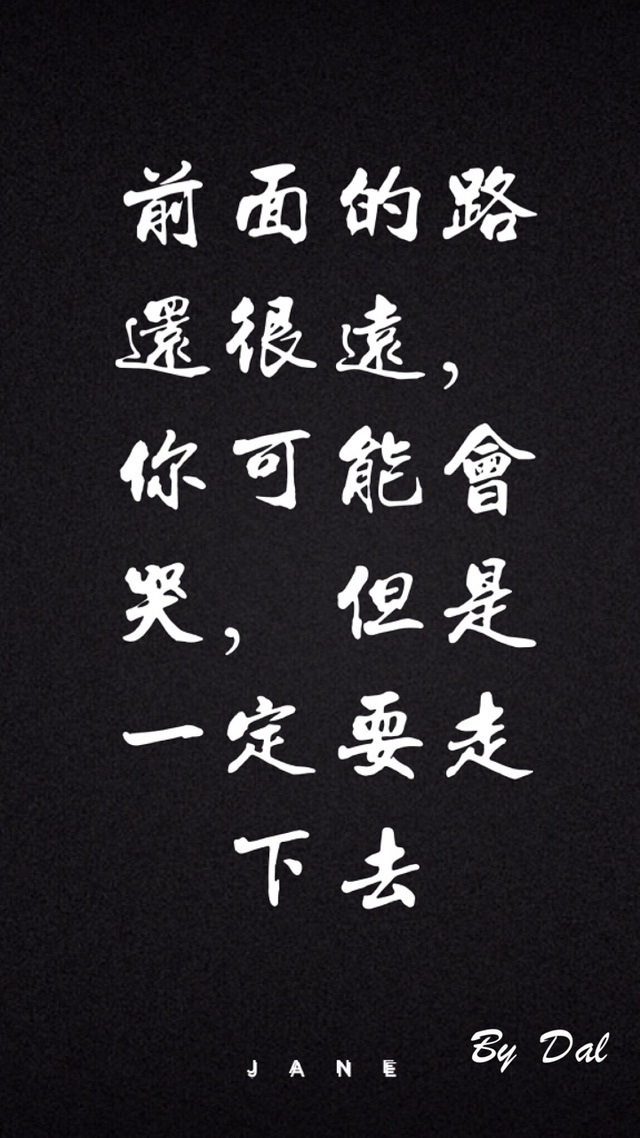 前面的路
還很遠，
你可能會
哭，但是
一定要走
下去
By Dal
JANE